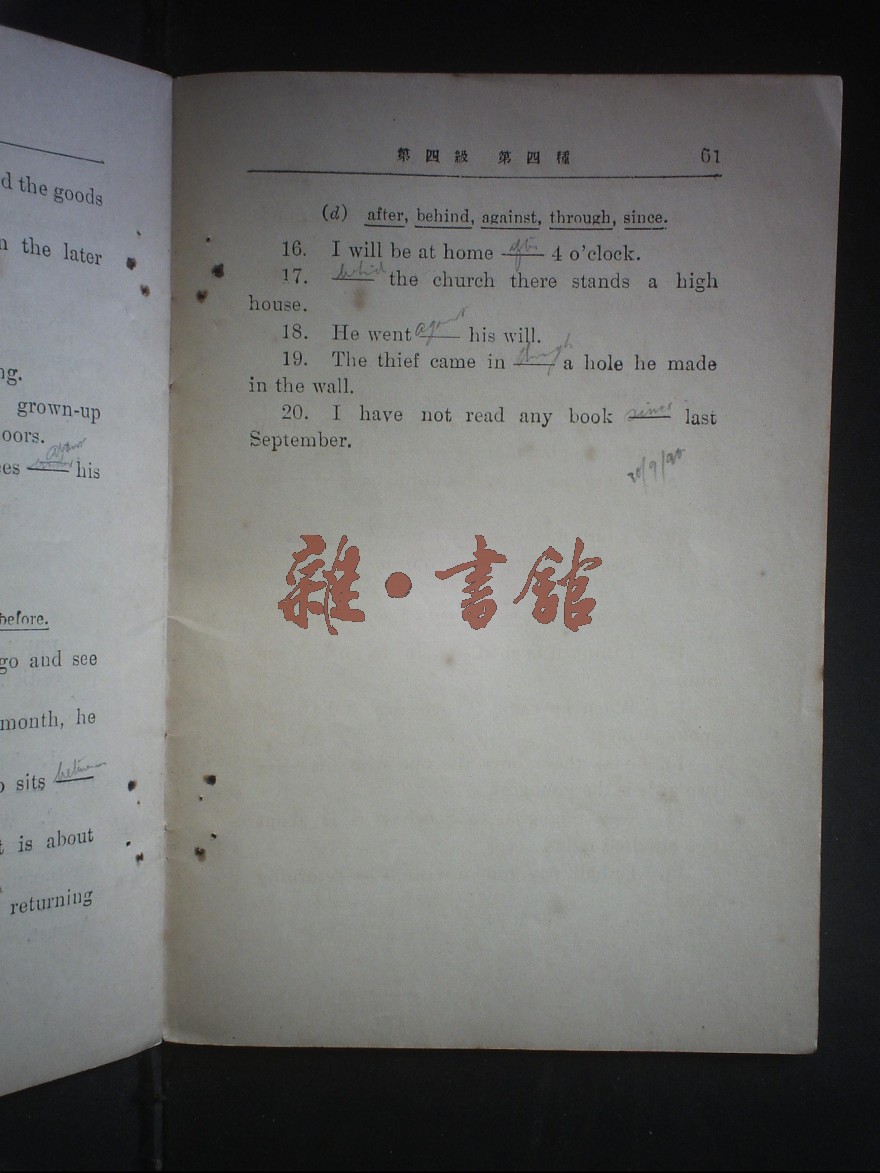 d the goods
the later
grown-up
oors.
his
before.
go and see
month, he
sits between
is about
returning
第四級 第四種 61
(d) after, behind, against, through, since.
16. I will be at home after 4 o'clock.
17. behind the church there stands a high
house.
18. He went against his will.
19. The thief came in through a hole he made
in the wall.
20. I have not read any book since last
September.
雜·書館